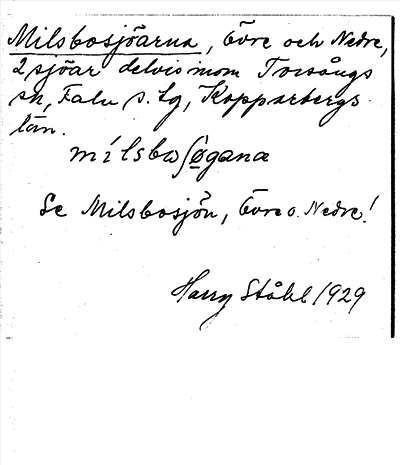 Milsbosjöarna, Övre och Nedre,
2 sjöar delvis inom Torsångs
sn, Falu s. tg, Kopparbergs
län.
mílsbaʃø̀gana
Se Milsbosjön, Övre o. Nedre!
Harry Ståhl 1929